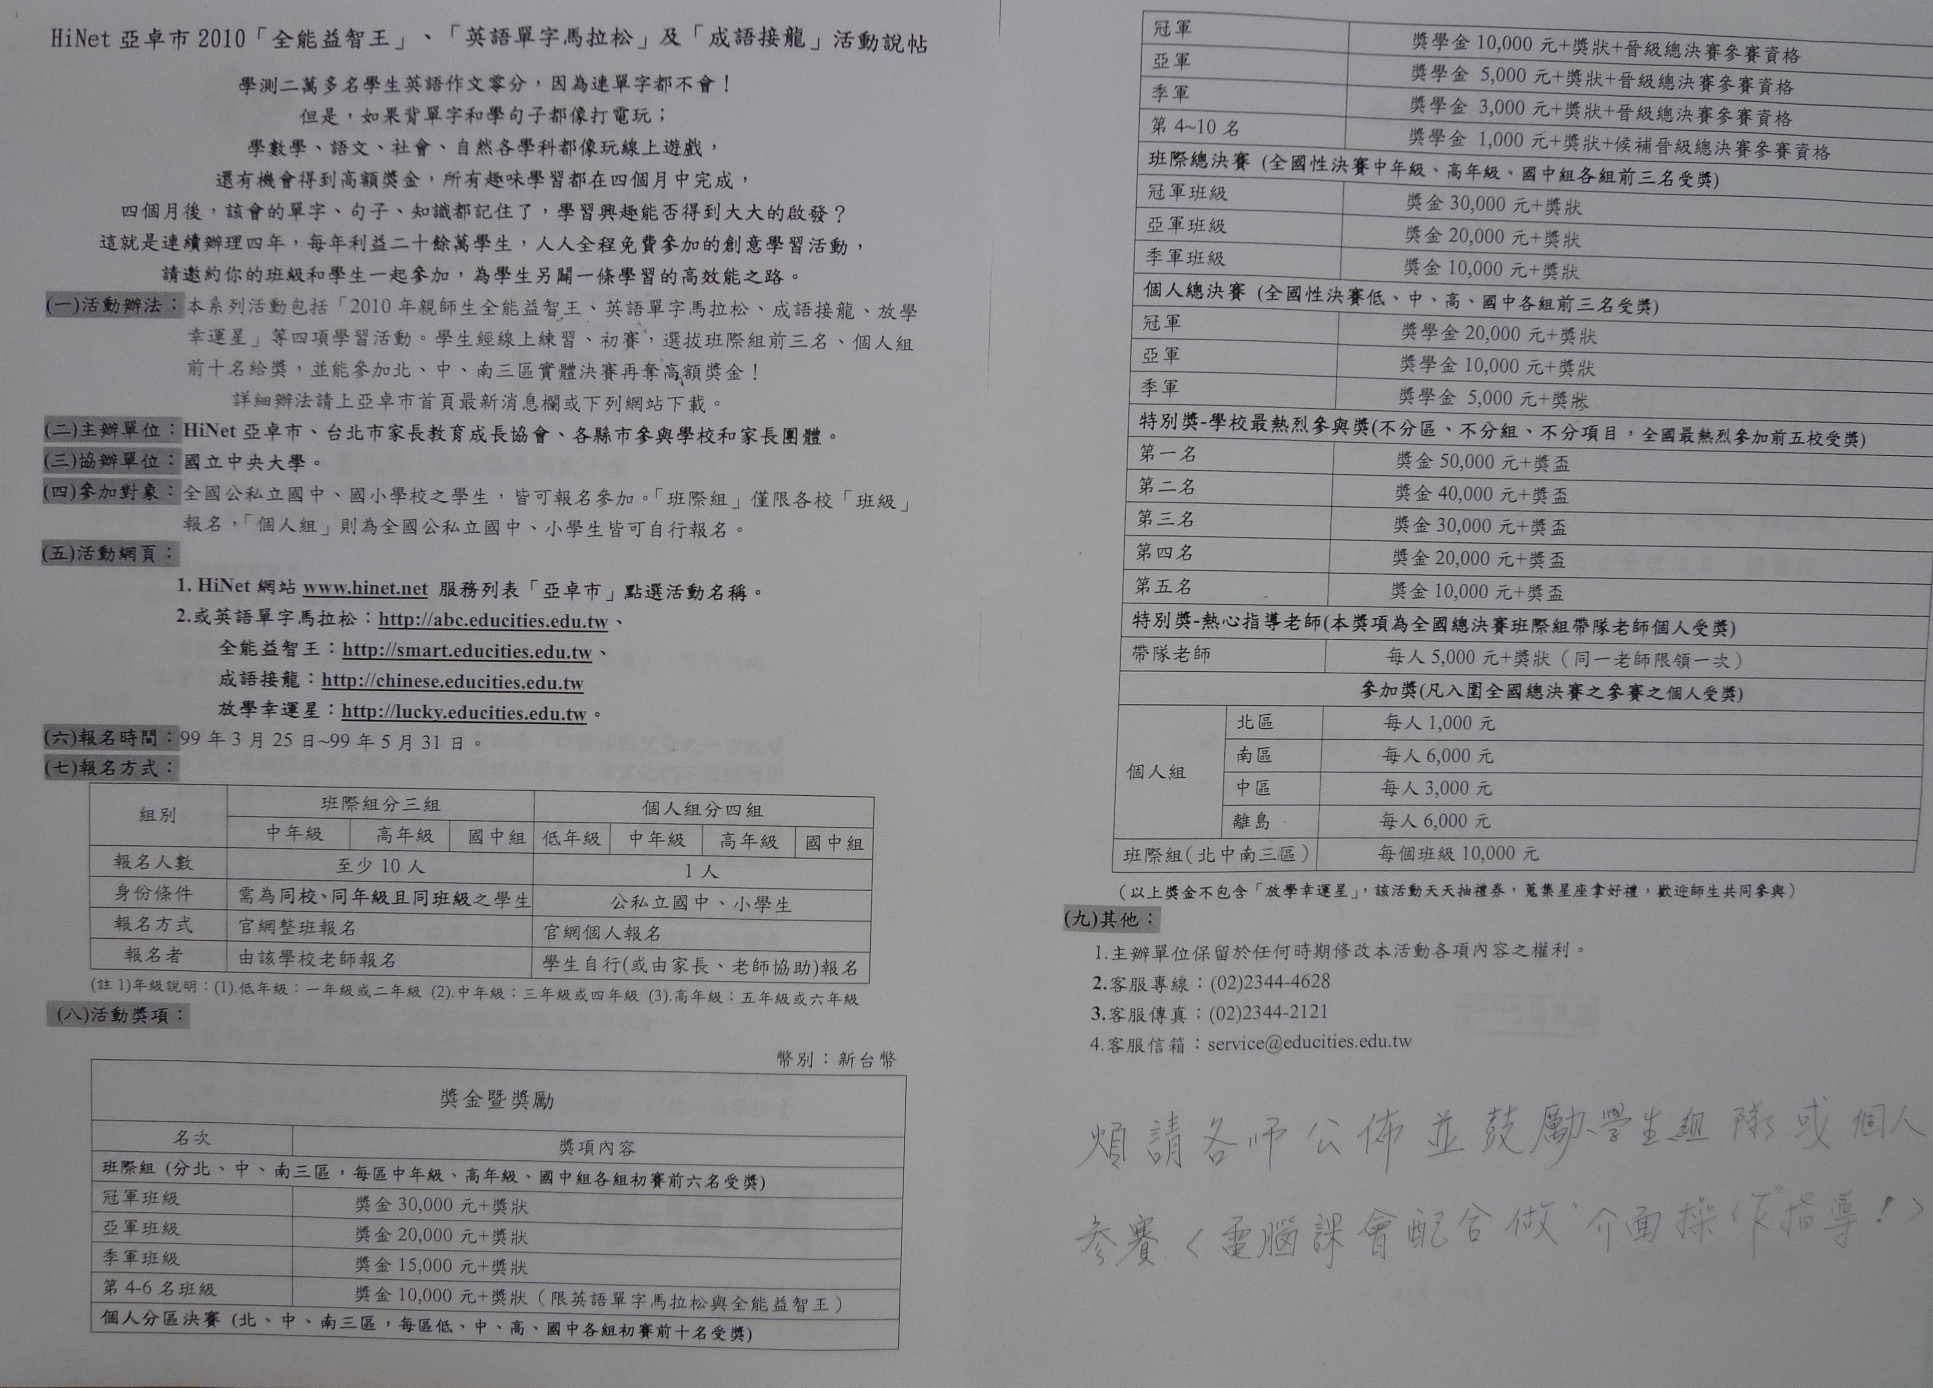 HiNet 亞卓市 2010「全能益智王」、「英語單字馬拉松」及「成語接龍」活動說帖
學測二萬多名學生英語作文零分，因為連單字都不會！
但是，如果背單字和學句子都像打電玩；
學數學、語文、社會、自然各學科都像玩線上遊戲，
還有機會得到高額獎金，所有趣味學習都在四個月中完成，
四個月後，該會的單字、句子、知識都記住了，學習興趣能否得到大大的啟發？
這就是連續辦理四年，每年利益二十餘萬學生，人人全程免費參加的創意學習活動，
請邀約你的班級和學生一起參加，為學生另闢一條學習的高效能之路。
(一)活動辦法：本系列活動包括「2010 年親師生全能益智王、英語單字馬拉松、成語接龍、放學
幸運星」等四項學習活動。學生經線上練習、初賽，選拔班際組前三名、個人組
前十名給獎，並能參加北、中、南三區實體決賽再奪高額獎金！
詳細辦法請上亞卓市首頁最新消息欄或下列網站下載。
(二)主辦單位：HiNet 亞卓市、台北市家長教育成長協會、各縣市參與學校和家長團體。
(三)協辦單位：國立中央大學。
(四)參加對象：全國公私立國中、國小學校之學生，皆可報名參加。「班際組」僅限各校「班級」
報名，「個人組」則為全國公私立國中、小學生皆可自行報名。
(五)活動網頁：
1. HiNet 網站 www.hinet.net 服務列表「亞卓市」點選活動名稱。
2.或英語單字馬拉松：http://abc.educities.edu.tw、
全能益智王：http://smart.educities.edu.tw、
成語接龍：http://chinese.educities.edu.tw
放學幸運星：http://lucky.educities.edu.tw。
(六)報名時間：99 年 3 月 25 日~99 年 5 月 31 日。
(七)報名方式：
組別 班際組分三組 個人組分四組
中年級 高年級 國中組 低年級 中年級 高年級 國中組
報名人數 至少 10 人 1 人
身份條件 需為同校、同年級且同班級之學生 公私立國中、小學生
報名方式 官網整班報名 官網個人報名
報名者 由該學校老師報名 學生自行(或由家長、老師協助)報名
(註 1)年級說明：(1).低年級：一年級或二年級 (2).中年級：三年級或四年級 (3).高年級：五年級或六年級
(八)活動獎項：
幣別：新台幣
獎金暨獎勵
名次 獎項內容
班際組 (分北、中、南三區，每區中年級、高年級、國中組各組初賽前六名受獎)
冠軍班級 獎金 30,000 元+獎狀
亞軍班級 獎金 20,000 元+獎狀
季軍班級 獎金 15,000 元+獎狀
第 4-6 名班級 獎金 10,000 元+獎狀（限英語單字馬拉松與全能益智王）
個人分區決賽 (北、中、南三區，每區低、中、高、國中各組初賽前十名受獎)
冠軍 獎學金 10,000 元+獎狀+晉級總決賽參賽資格
亞軍 獎學金 5,000 元+獎狀+晉級總決賽參賽資格
季軍 獎學金 3,000 元+獎狀+晉級總決賽參賽資格
第 4~10 名 獎學金 1,000 元+獎狀+候補晉級總決賽參賽資格
班際總決賽 (全國性決賽中年級、高年級、國中組各組前三名受獎)
冠軍班級 獎金 30,000 元+獎狀
亞軍班級 獎金 20,000 元+獎狀
季軍班級 獎金 10,000 元+獎狀
個人總決賽 (全國性決賽低、中、高、國中各組前三名受獎)
冠軍 獎學金 20,000 元+獎狀
亞軍 獎學金 10,000 元+獎狀
季軍 獎學金 5,000 元+獎狀
特別獎-學校最熱烈參與獎(不分區、不分組、不分項目，全國最熱烈參加前五校受獎)
第一名 獎金 50,000 元+獎盃
第二名 獎金 40,000 元+獎盃
第三名 獎金 30,000 元+獎盃
第四名 獎金 20,000 元+獎盃
第五名 獎金 10,000 元+獎盃
特別獎-熱心指導老師(本獎項為全國總決賽班際組帶隊老師個人受獎)
帶隊老師 每人 5,000 元+獎狀（同一老師限領一次）
參加獎(凡入圍全國總決賽之參賽之個人受獎)
個人組 北區 每人 1,000 元
南區 每人 6,000 元
中區 每人 3,000 元
離島 每人 6,000 元
班際組(北中南三區) 每個班級 10,000 元
（以上獎金不包含「放學幸運星」，該活動天天抽禮券，蒐集星座拿好禮，歡迎師生共同參與）
(九)其他：
1.主辦單位保留於任何時期修改本活動各項內容之權利。
2.客服專線：(02)2344-4628
3.客服傳真：(02)2344-2121
4.客服信箱：service@educities.edu.tw
煩請各師公佈並鼓勵學生組隊或個人
參賽.<電腦課會配合做"介面操作"指導!>